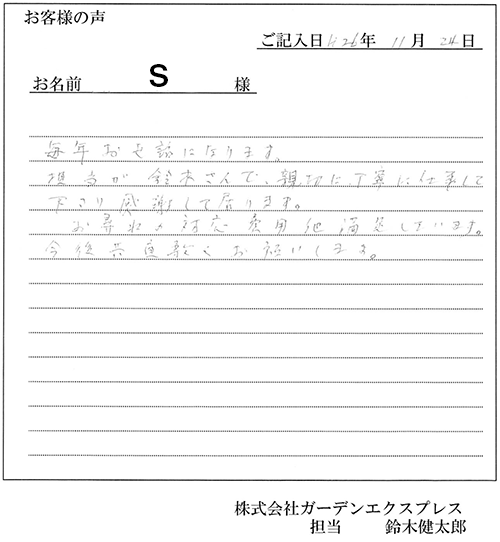 お客様の声
ご記入日 H26年 11月 24日
お名前 S 様
毎年お世話になります。
担当が鈴木さんで、親切に丁寧に仕事して
下さり感謝して居ります。
お尋ねの対応 費用他 満足しています。
今後共宜敷くお願いします。
株式会社ガーデンエクスプレス
担当 鈴木健太郎